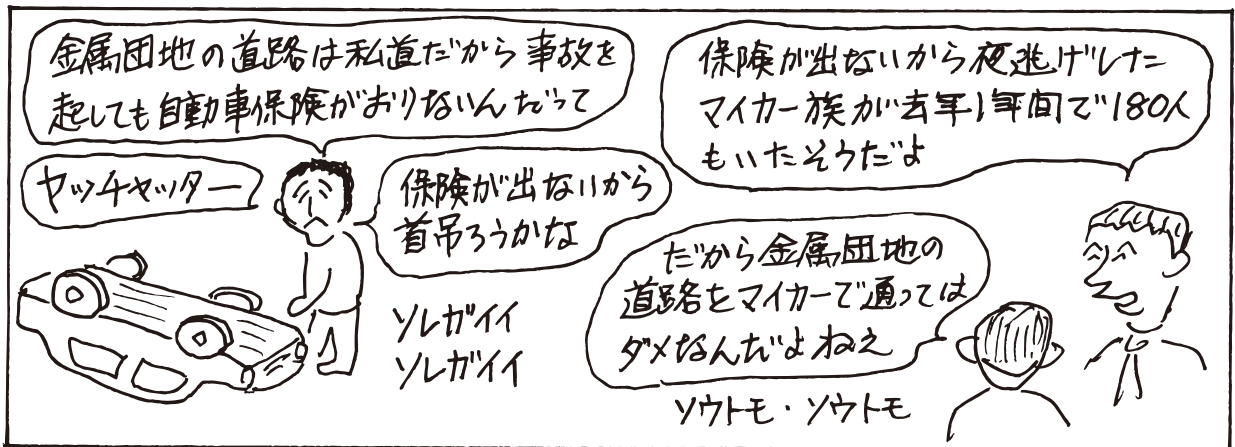 金属団地の道路は私道だから事故を
起しても自動車保険がおりないんだって
ヤッチャッター
保険が出ないから
首吊ろうかな
ソレガイイ
ソレガイイ
保険が出ないから夜逃げした
マイカー族が去年1年間で180人
もいたそうだよ
だから金属団地の
道路をマイカーで通っては
ダメなんだよねえ
ソウトモ・ソウトモ